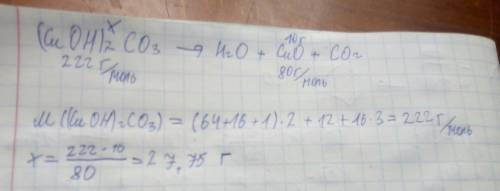 x 10г
(CuOH)₂CO₃ → H₂O + CuO + CO₂
222 г/моль 80 г/моль
M((CuOH)₂CO₃) = (64+16+1)·2+12+16·3=222 г/моль
x = 222·10/80 = 27,75 г